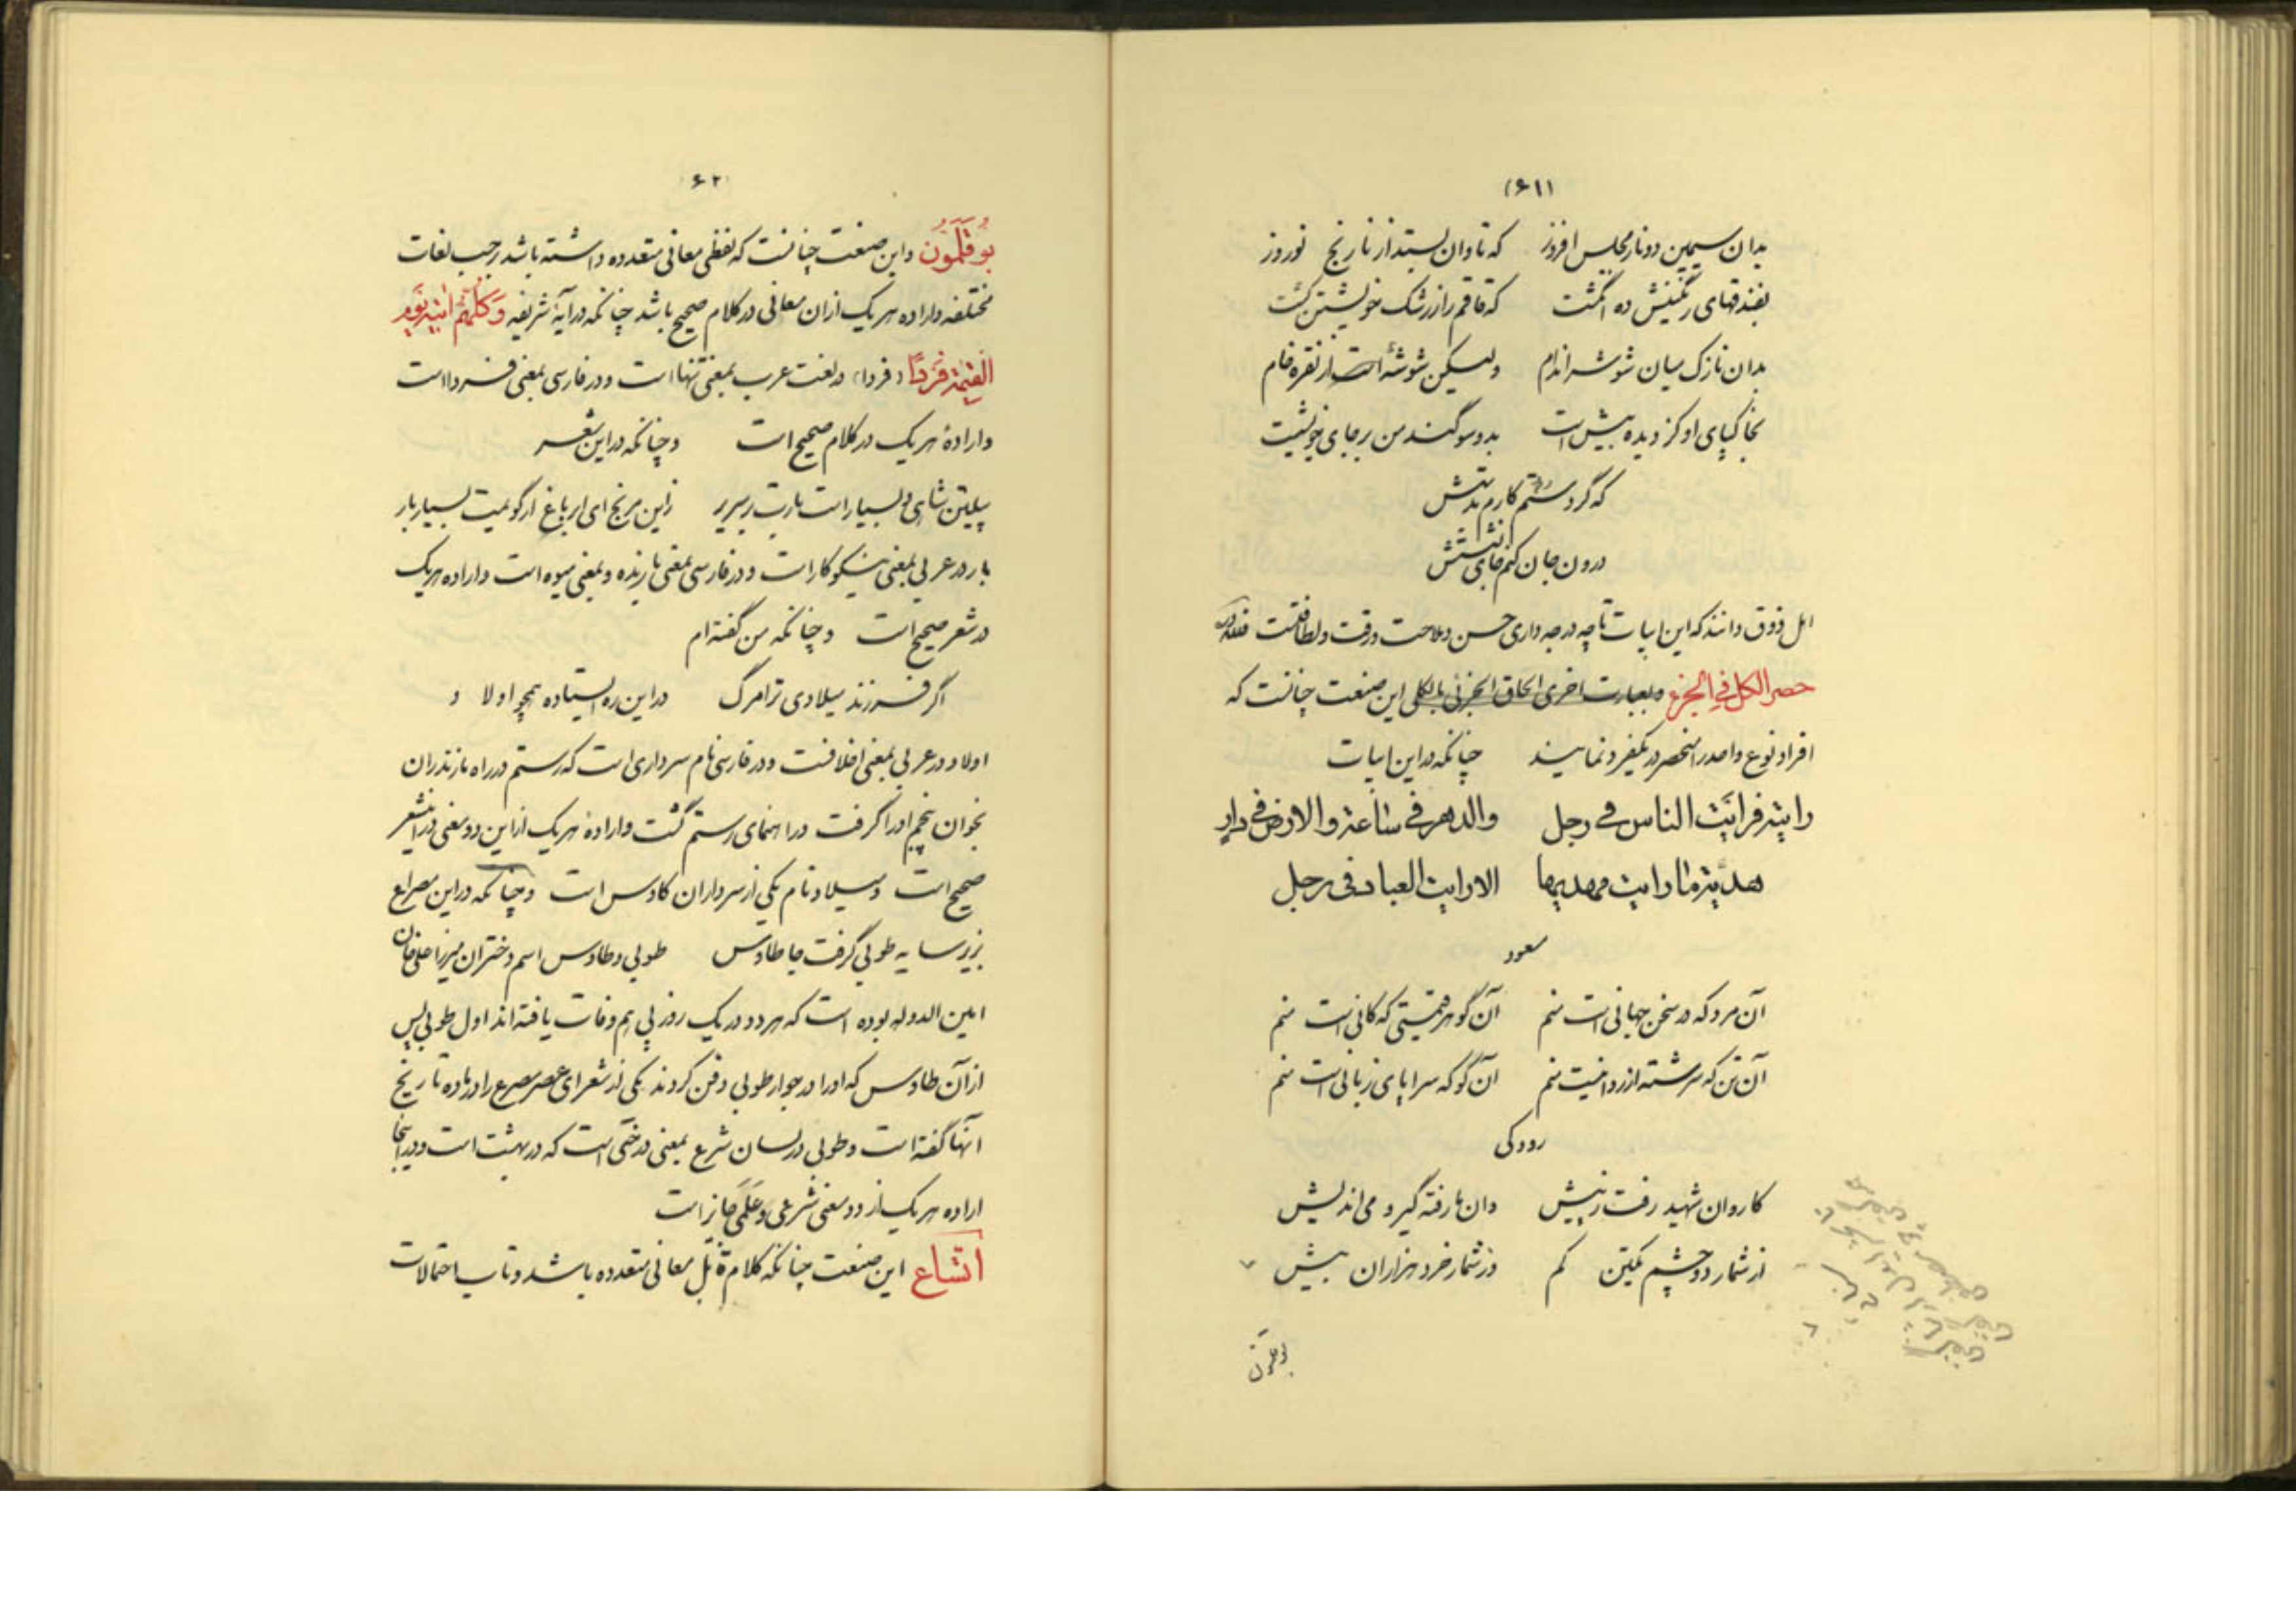 (۶۱)
بدان سیمین دو نار مجلس افروز که تاوان بستد از نارنج نوروز
بفندقهای رنگینش ده انگشت که قاقم را ز رشک خویشتن کشت
بدان نازک میان شوشه اندام ولیکن شوشهٔ از نقره خام
بخاکپای او کز دیده بیش است بدو سوگند من بر جای خویشست
که گر دستم رسد کارم بدستش
درون جان کنم جای نشستش
اهل ذوق دانند که این ابیات تا چه درجه دارای حسن و ملاحت و رقت و لطافتست
حصر الکل فی الجزء و بعبارت اخری الحاق الجزئی بالکلی این صنعت چنانست که
افراد نوع واحد را منحصر در یکفرد نمایند چنانکه در این ابیات
رایته فرایت الناس فی رجل والدهر فی ساعة والارض فی دار
هدیته ما رایت مهدیها الا رایت العباد فی رجل
مسعود
آن مرد که در سخن جهانی است منم آن گوهر قیمتی که کانی است منم
آن تن که سرشته از روانیست منم آن گو که سراپای زبانی است منم
رودکی
کاروان شهید رفت ز پیش وان ما رفته گیر و می اندیش
از شمار دو چشم یکتن کم وز شمار خرد هزاران بیش
بوقلمون
۶۲
بُوقَلَمُون و این صنعت چنانست که لفظی معانی متعدده داشته باشد بر حسب لغات
مختلفه و اراده هر یک از ان معانی در کلام صحیح باشد چنانکه در آیهٔ شریفه وَکُلُّهُم اٰتیهِ یَومَ
القیمة فَرداً (فردا) در لغت عرب بمعنی تنها است و در فارسی بمعنی فردا است
و ارادهٔ هر یک در کلام صحیح است و چنانکه در این شعر
پیلتن شاهی و بسیار است بارت بر سریر زاین مرنج ای ابر باغ ار گویمت بسیار بار
بار در عربی بمعنی نیکوکار است و در فارسی بمعنی بارنده و بمعنی میوه است و اراده هر یک
در شعر صحیح است و چنانکه من گفته ام
اگر فرزند میلادی ترا مرگ در این ره ایستاده همچو اولاد
اولاد در عربی بمعنی اخلافست و در فارسی نام سرداری است که رستم در راه مازندران
بخوان پنجم او را گرفت و راهنمای رستم گشت و ارادهٔ هر یک از این دو معنی در این شعر
صحیح است و میلاد نام یکی از سرداران کاوس است و چنانکه در این مصراع
بزیر سایه طوبی گرفت جا طاوس طوبی و طاوس اسم دختران میرزا علی خان
امین الدوله بوده است که هر دو در یک روز پی هم وفات یافته اند اول طوبی پس
از آن طاوس که او را در جوار طوبی دفن کردند یکی از شعرای عصر مصرع را در ماده تاریخ
آنها گفته است و طوبی در لسان شرع بمعنی درختی است که در بهشت است و در اینجا
اراده هر یک از دو معنی شرعی و عَلَمی جایز است
اتساع این صنعت چنانکه کلام قابل معانی متعدده باشد و تاب احتمالات